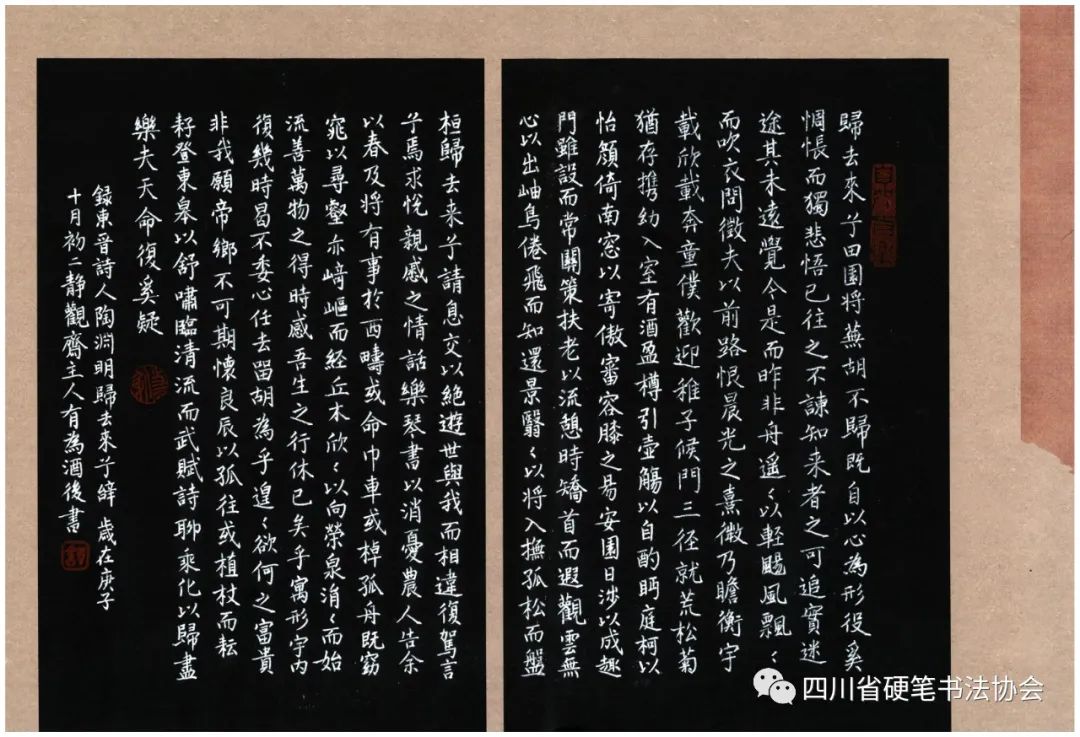 歸去來兮田園將蕪胡不歸既自以心為形役奚
惆悵而獨悲悟已往之不諫知来者之可追實迷
途其未遠覺今是而昨非舟遥〻以輕颺風飄〻
而吹衣問徵夫以前路恨晨光之熹微乃瞻衡宇
載欣載奔童僕歡迎稚子候門三径就荒松菊
猶存携幼入室有酒盈樽引壺觴以自酌眄庭柯以
怡顔倚南窓以寄傲審容膝之易安園日涉以成趣
門雖設而常關策扶老以流憩時矯首而遐觀雲無
心以出岫鳥倦飛而知還景翳〻以将入撫孤松而盤
桓歸去来兮請息交以絶遊世與我而相違復駕言
兮焉求悅親戚之情話樂琴書以消憂農人告余
以春及将有事於西疇或命巾車或棹孤舟既窈
窕以尋壑亦﨑嶇而経丘木欣〻以向榮泉涓〻而始
流善萬物之得時感吾生之行休已矣乎寓形宇内
復幾時曷不委心任去留胡為乎遑〻欲何之富貴
非我願帝鄉不可期懷良辰以孤往或植杖而耘
耔登東皋以舒嘯臨清流而武賦詩聊乘化以歸盡
樂夫天命復奚疑
録東晉詩人陶淵明歸去來兮辭 歲在庚子
十月初二靜觀齋主人有為酒後書
四川省硬笔书法协会